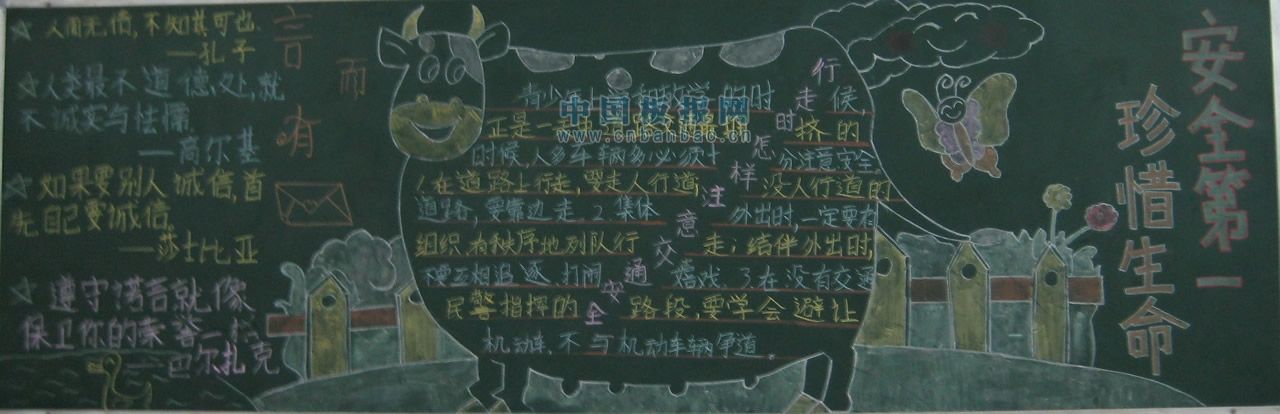 人而无信,不知其可也.
—孔子
☆人类最不道德处,就
不诚实与怯懦.
—高尔基
☆如果要别人诚信,首
先自己要诚信.
—莎士比亚
☆遵守诺言就像
保卫你的荣誉一样
—巴尔扎克
言而有
行走时怎样注意交通安全
青少年上学和放学的时候,
正是一
挤的
时候,人多车辆多必须十分注意安全.
1在道路上行走,要走人行道;没人行道的
道路,要靠边走.2.集体外出时,一定要有
组织有秩序地列队行走;结伴外出时
不要互相追逐打闹嬉戏.3在没有交通
民警指挥的路段,要学会避让
机动车,不与机动车辆争道。
中国板报网
www.cnbanbao.cn
安全第一
珍惜生命